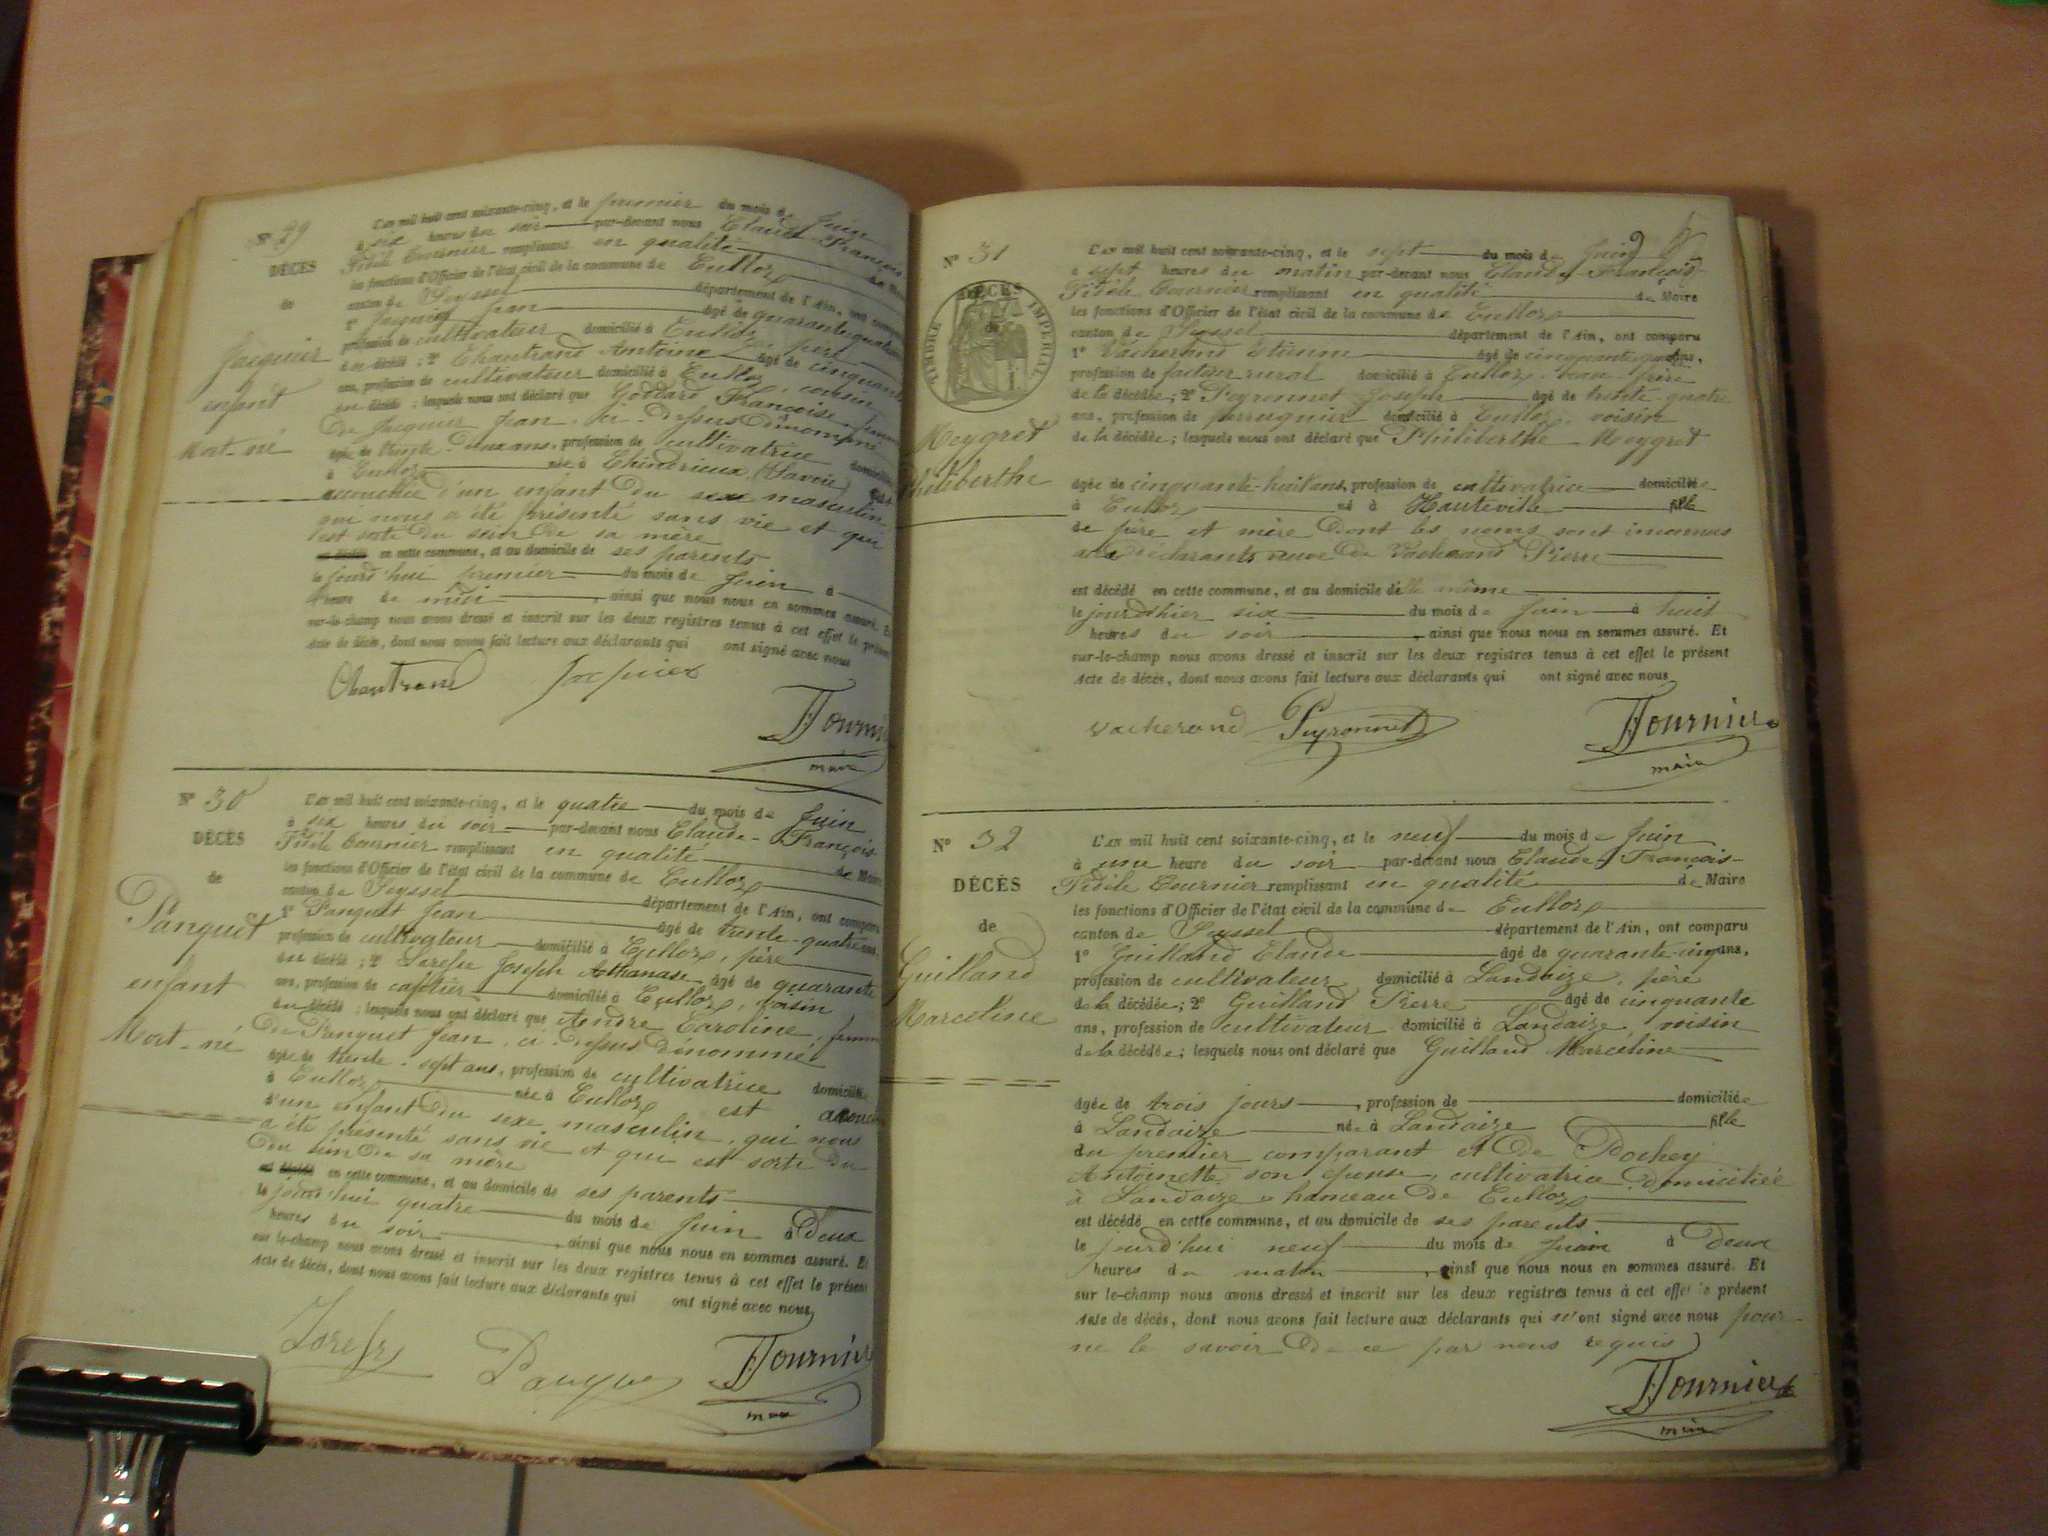 N° 29
DÉCÈS
de
Jacquier
enfant
Mort-né
L'an mil huit cent soixante-cinq, et le premier du mois de Juin
à six heures du soir par-devant nous Claude-François
Fidèle Fournier remplissant en qualité de Maire
les fonctions d'Officier de l'état civil de la commune de Culloz
canton de Seyssel département de l'Ain, ont comparu
1° Jacquier Jean âgé de quarante quatre
profession de cultivateur domicilié à Culloz, père
du décédé ; 2° Chautrand Antoine âgé de cinquante
ans, profession de cultivateur domicilié à Culloz, cousin
du décédé ; lesquels nous ont déclaré que Goddard Françoise, femme
de Jacquier Jean, ci-dessus dénommé
âgée de trente-deux ans, profession de cultivatrice domiciliée
à Culloz née à Chindrieux (Savoie) est
accouchée d'un enfant du sexe masculin
qui nous a été présenté sans vie et qui
est sorti du sein de sa mère
est décédé en cette commune, et au domicile de ses parents
le jourd'hui premier du mois de Juin à
heure de midi, ainsi que nous nous en sommes assuré. Et
sur-le-champ nous avons dressé et inscrit sur les deux registres tenus à cet effet le présent
Acte de décès, dont nous avons fait lecture aux déclarants qui ont signé avec nous
Chautrand Jacquier
Fournier
maire
N° 30
DÉCÈS
de
Panquet
enfant
Mort-né
L'an mil huit cent soixante-cinq, et le quatre du mois de Juin
à six heures du soir par-devant nous Claude-François
Fidèle Fournier remplissant en qualité de Maire
les fonctions d'Officier de l'état civil de la commune de Culloz
canton de Seyssel département de l'Ain, ont comparu
1° Panquet Jean âgé de trente-quatre ans,
profession de cultivateur domicilié à Culloz, père
du décédé ; 2° Joseph Athanase âgé de quarante
ans, profession de cafetier domicilié à Culloz, voisin
du décédé ; lesquels nous ont déclaré que Andre Caroline, femme
de Panquet Jean, ci-dessus dénommé
âgée de trente-sept ans, profession de cultivatrice domiciliée
à Culloz née à Culloz est accouchée
d'un enfant du sexe masculin, qui nous
a été présenté sans vie et que est sorti du
du sein de sa mère
est décédé en cette commune, et au domicile de ses parents
le jourd'hui quatre du mois de Juin à deux
heures du soir, ainsi que nous nous en sommes assuré. Et
sur le-champ nous avons dressé et inscrit sur les deux registres tenus à cet effet le présent
Acte de décès, dont nous avons fait lecture aux déclarants qui ont signé avec nous
Panquet Fournier
maire
N° 31
DÉCÈS
de
TIMBRE IMPÉRIAL
Meygret
Philiberthe
L'an mil huit cent soixante-cinq, et le sept du mois de Juin
à sept heures du matin par-devant nous Claude-François
Fidèle Fournier remplissant en qualité de Maire
les fonctions d'Officier de l'état civil de la commune de Culloz
canton de Seyssel département de l'Ain, ont comparu
1° Vacherand Etienne âgé de cinquante quatre ans,
profession de facteur rural domicilié à Culloz, beau frère
de la décédée ; 2° Peyronnet Joseph âgé de trente-quatre
ans, profession de perruquier domicilié à Culloz, voisin
de la décédée ; lesquels nous ont déclaré que Philiberthe Meygret
âgée de cinquante-huit ans, profession de cultivatrice domiciliée
à Culloz né à Hauteville fille
de père et mère dont les noms sont inconnus
aux déclarants veuve de Vacherand Pierre
est décédé en cette commune, et au domicile d'elle même
le jour d'hier six du mois de Juin à huit
heures du soir, ainsi que nous nous en sommes assuré. Et
sur-le-champ nous avons dressé et inscrit sur les deux registres tenus à cet effet le présent
Acte de décès, dont nous avons fait lecture aux déclarants qui ont signé avec nous
Vacherand Peyronnet Fournier
maire
N° 32
DÉCÈS
de
Guilland
Marceline
L'an mil huit cent soixante-cinq, et le neuf du mois de Juin
à une heure du soir par-devant nous Claude-François
Fidèle Fournier remplissant en qualité de Maire
les fonctions d'Officier de l'état civil de la commune de Culloz
canton de Seyssel département de l'Ain, ont comparu
1° Guilland Claude âgé de quarante-cinq ans,
profession de cultivateur domicilié à Landaize, père
de la décédée ; 2° Guilland Pierre âgé de cinquante
ans, profession de cultivateur domicilié à Landaize, voisin
de la décédée ; lesquels nous ont déclaré que Guilland Marceline
âgée de trois jours, profession de domiciliée
à Landaize née à Landaize fille
du premier comparant et de Pochey
Antoinette son épouse, cultivatrice domiciliée
à Landaize hameau de Culloz
est décédé en cette commune, et au domicile de ses parents.
le jourd'hui neuf du mois de Juin à deux
heures du matin, ainsi que nous nous en sommes assuré. Et
sur le-champ nous avons dressé et inscrit sur les deux registres tenus à cet effet le présent
Acte de décès, dont nous avons fait lecture aux déclarants qui n'ont signé avec nous pour
ne le savoir de ce par nous requis
Fournier
maire